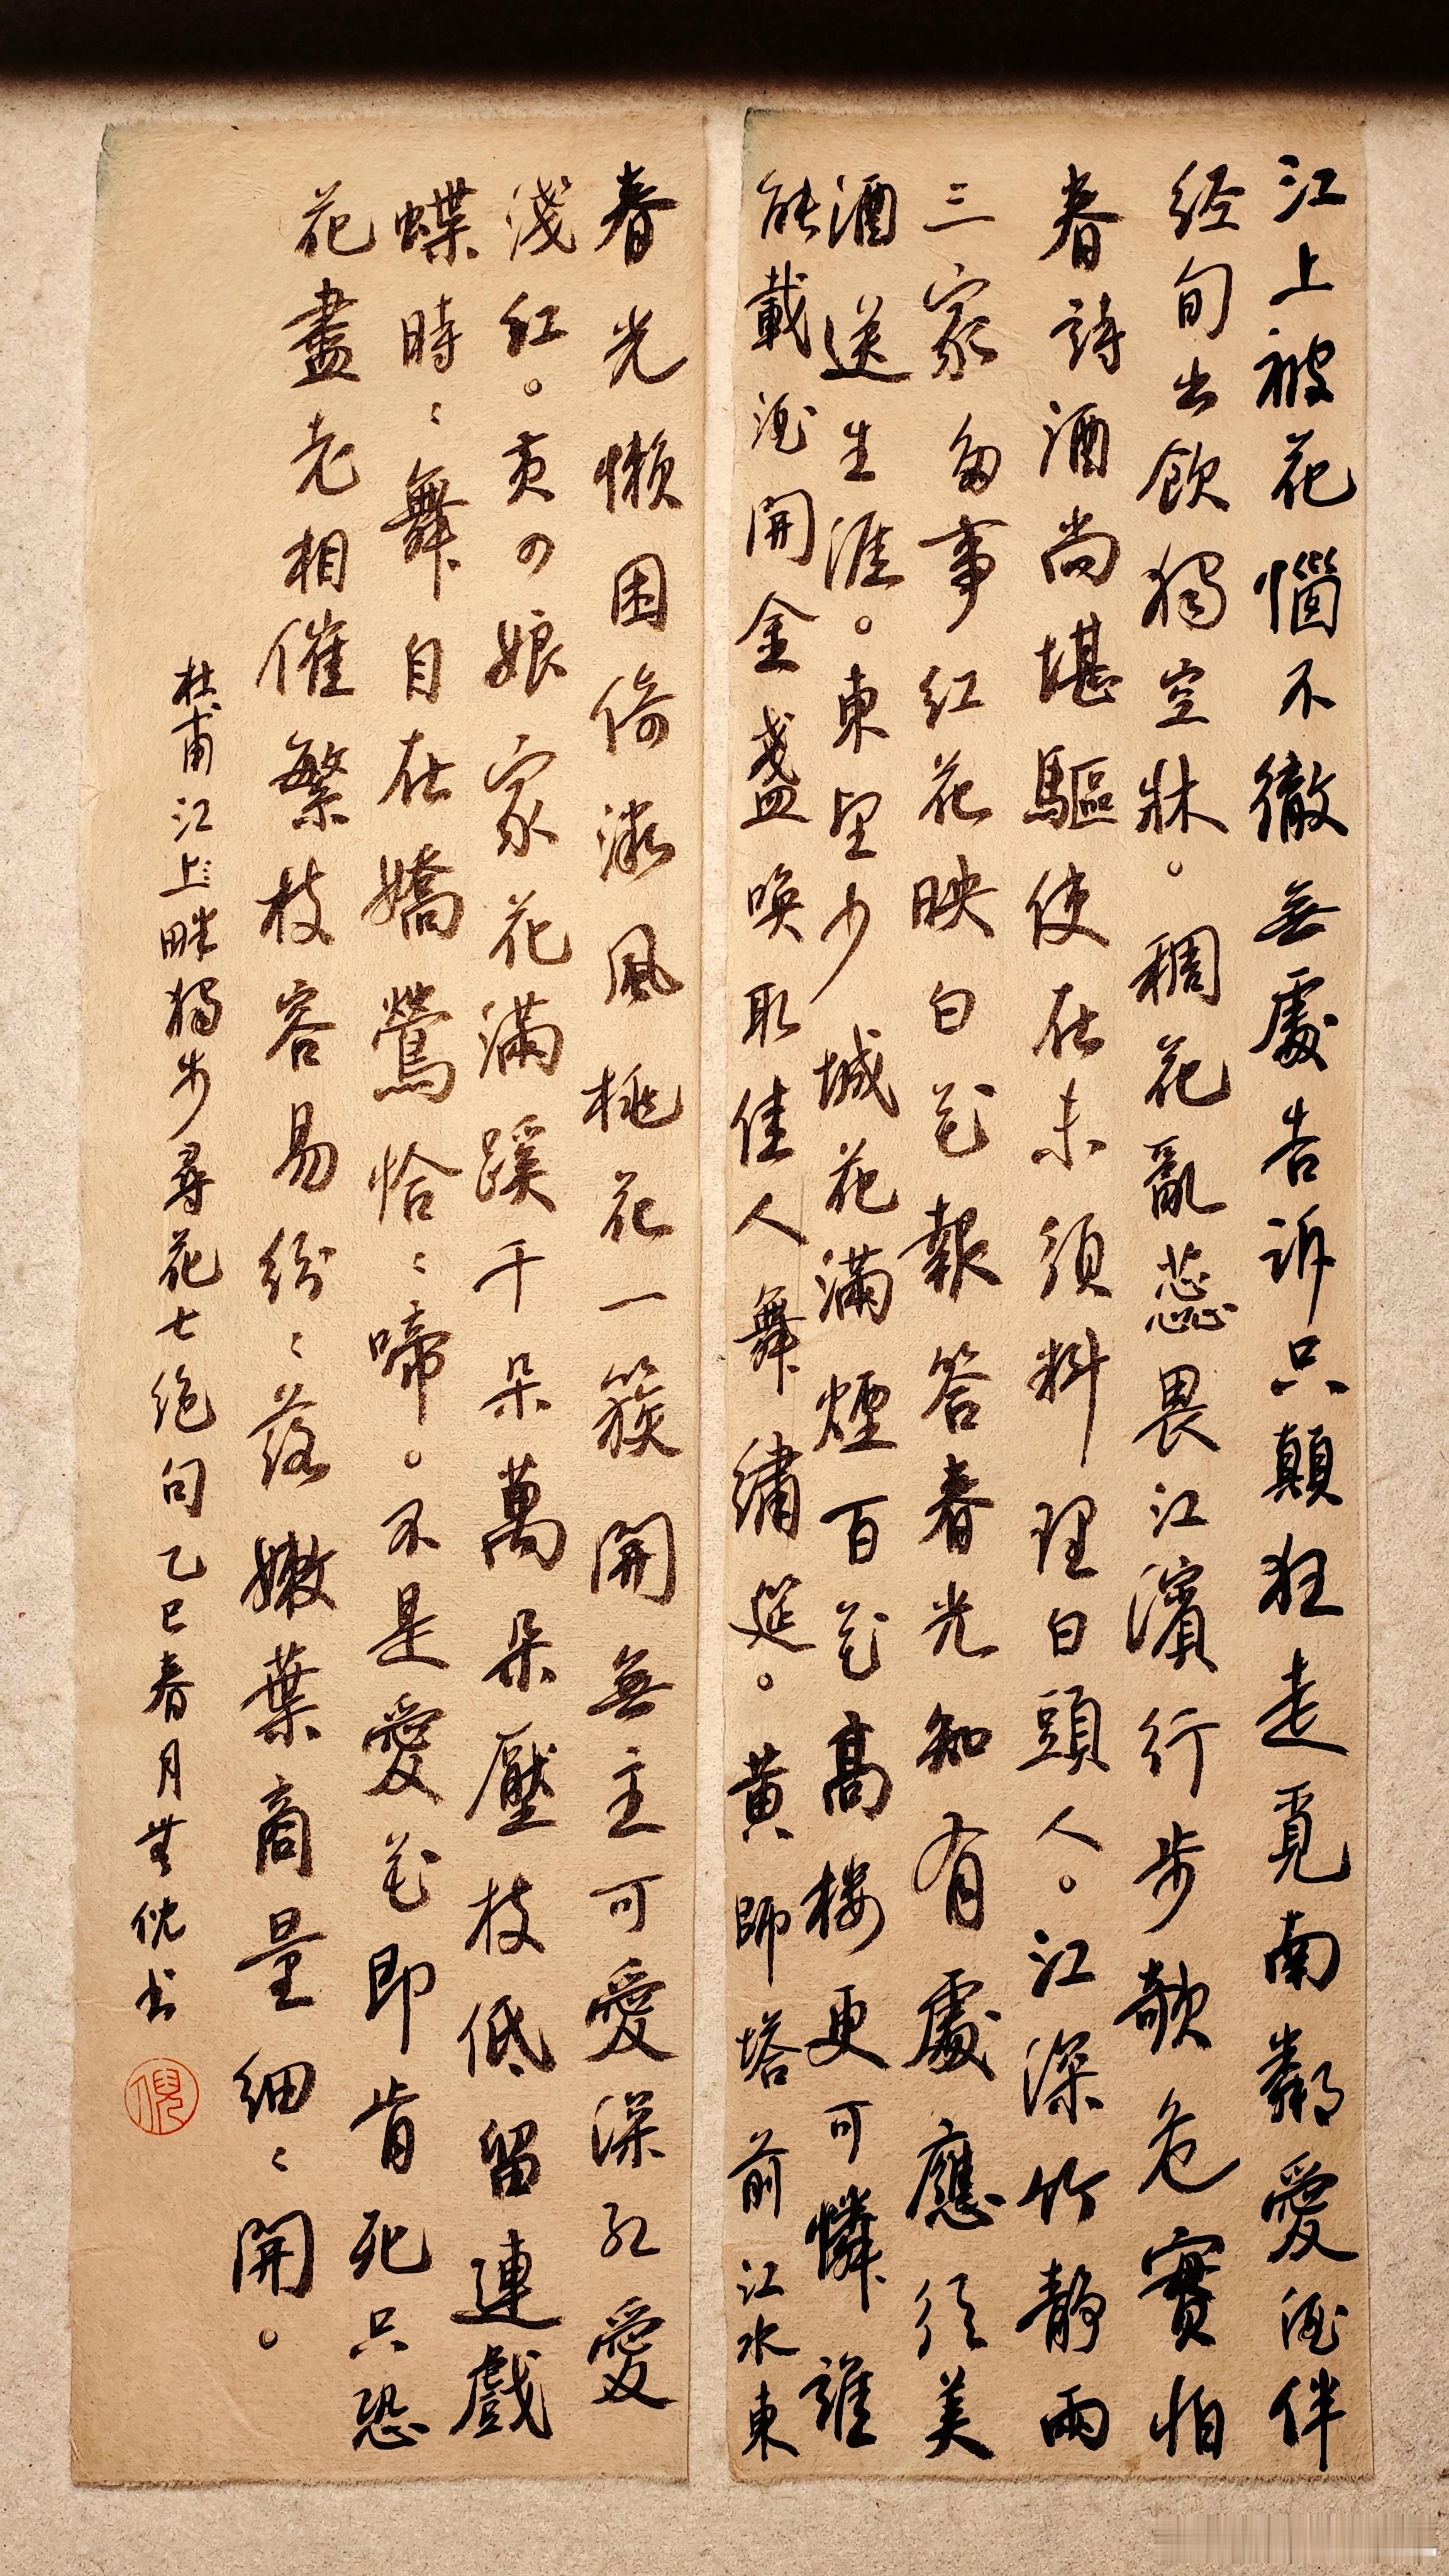 江上被花惱不徹無處告訴只顛狂走覓南鄰愛酒伴
经旬出飲獨空牀。稠花亂蕊畏江濱行步欹危實怕
春詩酒尚堪驅使在未須料理白頭人。江深竹静兩
三家多事红花映白花報答春光知有處應須美
酒送生涯。東望少城花滿煙百花髙楼更可憐誰
能載酒開金盞唤取佳人舞繡筵。黄師塔前江水東
春光懒困倚微風桃花一簇開無主可愛深红愛
淺红。黄四娘家花滿蹊千朵萬朵壓枝低留連戲
蝶時〻舞自在嬌鶯恰〻啼。不是愛花即肯死只恐
花盡老相催繁枝容易纷〻落嫩葉商量細〻開。
杜甫江上畔獨步尋花七绝句乙巳春月 倪书
倪